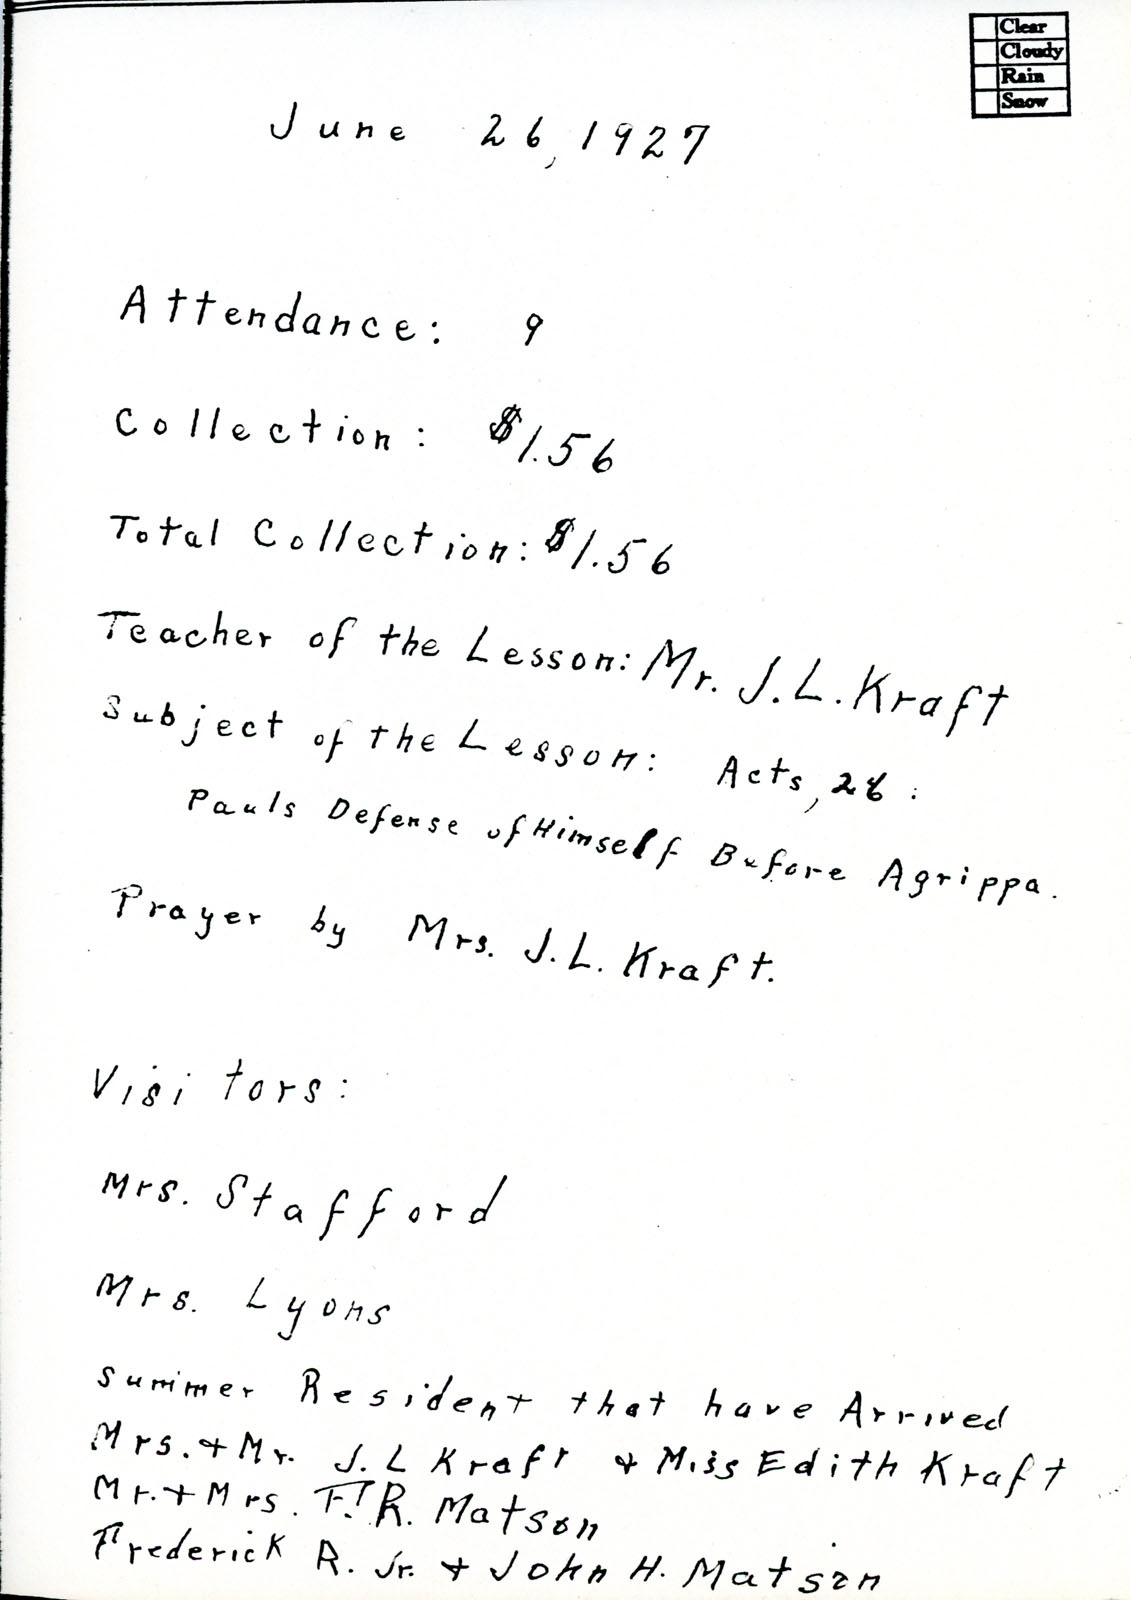 Clear
Cloudy
Rain
Snow
June 26, 1927
Attendance: 9
Collection: $1.56
Total Collection: $1.56
Teacher of the Lesson: Mr. J.L. Kraft
Subject of the Lesson: Acts, 26:
Pauls Defense of Himself Before Agrippa.
Prayer by Mrs. J.L. Kraft.
Visitors:
Mrs. Stafford
Mrs. Lyons
Summer Resident that have Arrived
Mrs. + Mr. J. L Kraft + Miss Edith Kraft
Mr. + Mrs. F. R. Matson
Frederick R. Jr. + John H. Matson